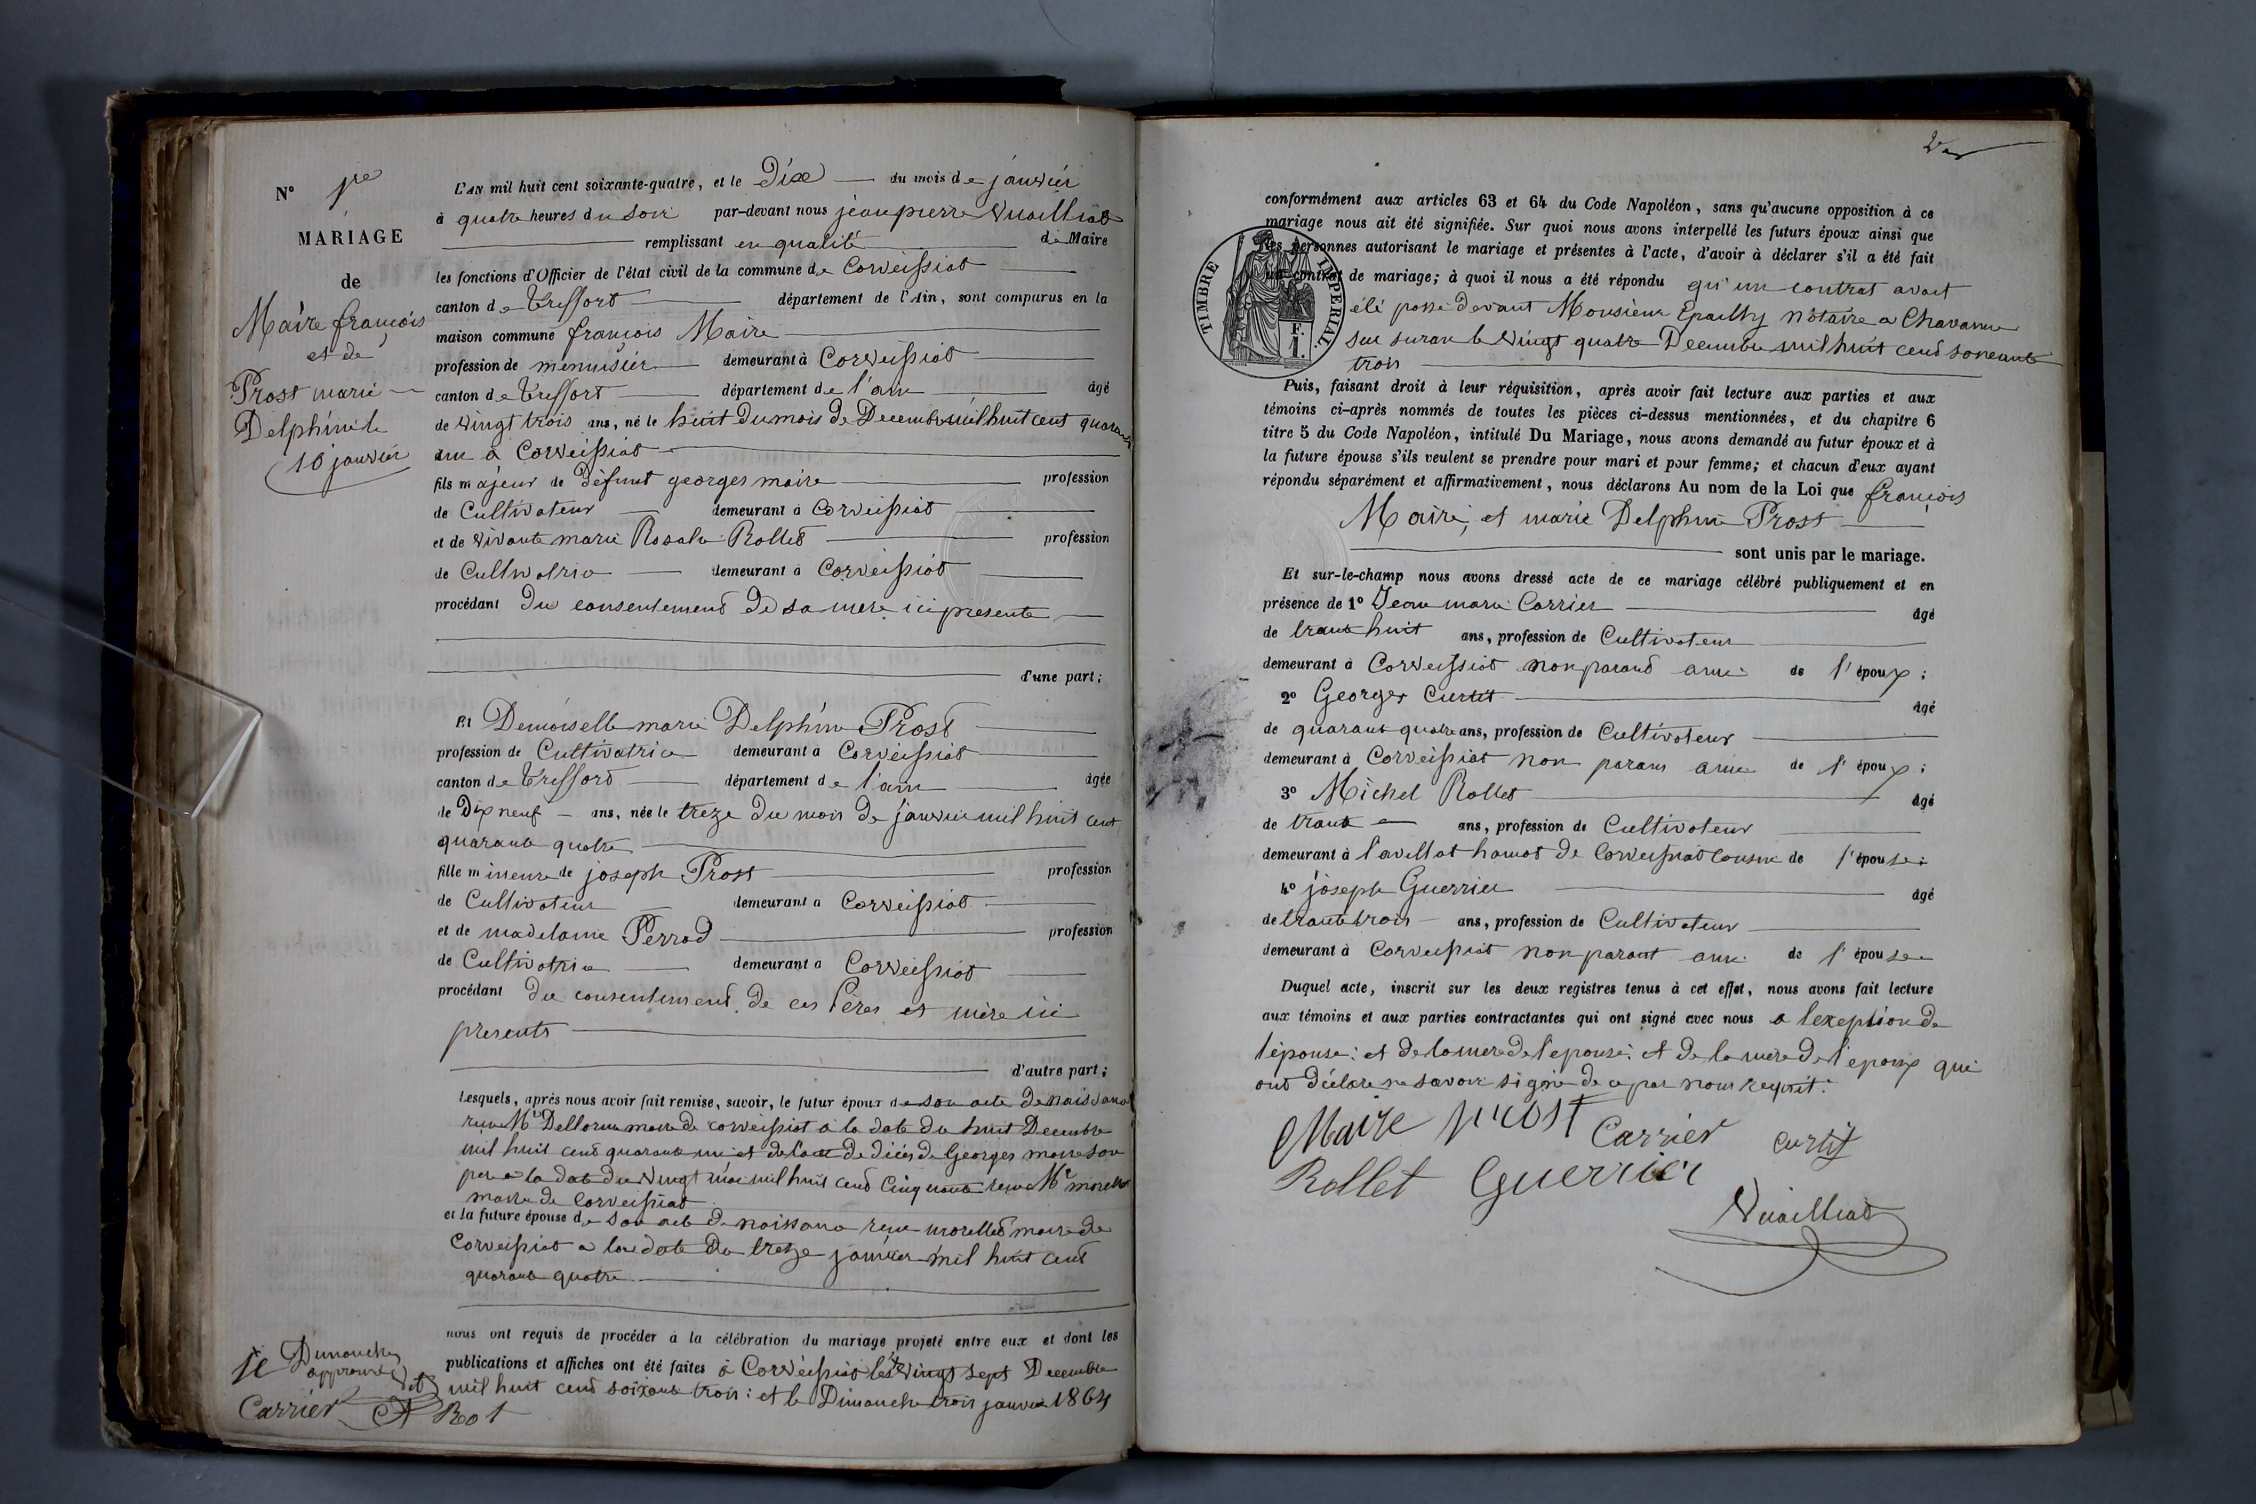 N° 1re
MARIAGE
de
Maire françois
et de
Prost marie
Delphine le
10 janvier
L'AN mil huit cent soixante-quatre, et le Dix du mois de janvier
à quatre heures du soir par-devant nous jean pierre Vuailliat
remplissant en qualité de Maire
les fonctions d'Officier de l'état civil de la commune de Corveissiat
canton de Treffort département de l'Ain, sont comparus en la
maison commune françois Maire
profession de menuisier demeurant à Corveissiat
canton de Treffort département de l'ain âgé
de vingt trois ans, né le huit du mois de Decembre mil huit cent quarante
un à Corveissiat
fils majeur de défunt georges maire profession
de Cultivateur demeurant à Corveissiat
et de vivante marie Rosalie Rollet profession
de Cultivatrice demeurant à Corveissiat
procédant du consentement de sa mere ici presente
d'une part;
Et Demoiselle marie Delphine Prost
profession de Cultivatrice demeurant à Corveissiat
canton de Treffort département de l'ain âgée
de Dix neuf ans, née le treze du mois de janvier mil huit cent
quarante quatre
fille mineure de joseph Prost profession
de Cultivateur demeurant à Corveissiat
et de madelaine Perrod profession
de Cultivatrice demeurant à Corveissiat
procédant du consentement de ces Pères et mère ici
presents
d'autre part;
Lesquels, après nous avoir fait remise, savoir, le futur époux de son acte de naissance
reçu Mr Dellorme maire de corveissiat a la date du huit Decembre
mil huit cent quarante un et de l'acte de décès de Georges maire son
pere a la date du vingt mai mil huit cent Cinquante reçu Mr morellet
maire de Corveissiat
et la future épouse de son acte de naissance reçu morellet maire de
Corveissiat a la date du treize janvier mil huit cent
quarante quatre
nous ont requis de procéder à la célébration du mariage projeté entre eux et dont les
publications et affiches ont été faites à Corveissiat le vingt sept Decembre
mil huit cent soixante trois: et le Dimanche trois janvier 1864
Dimanche
approuvé
Carrier
conformément aux articles 63 et 64 du Code Napoléon, sans qu'aucune opposition à ce
mariage nous ait été signifiée. Sur quoi nous avons interpellé les futurs époux ainsi que
les personnes autorisant le mariage et présentes à l'acte, d'avoir à déclarer s'il a été fait
un contrat de mariage; à quoi il nous a été répondu qu'un contrat avait
été passé devant Monsieur Epailly notaire a Chavanne
sur suran le vingt quatre Decembre mil huit cent soixante
trois
TIMBRE IMPERIAL.
F.
1.
Puis, faisant droit à leur réquisition, après avoir fait lecture aux parties et aux
témoins ci-après nommés de toutes les pièces ci-dessus mentionnées, et du chapitre 6
titre 5 du Code Napoléon, intitulé Du Mariage, nous avons demandé au futur époux et à
la future épouse s'ils veulent se prendre pour mari et pour femme; et chacun d'eux ayant
répondu séparément et affirmativement, nous déclarons Au nom de la Loi que françois
Maire, et marie Delphine Prost
sont unis par le mariage.
Et sur-le-champ nous avons dressé acte de ce mariage célébré publiquement et en
présence de 1° Jean marie Carrier âgé
de trante huit ans, profession de Cultivateur
demeurant à Corveissiat non parand ami de l'époux;
2° Georges Curtit âgé
de quarant quatre ans, profession de Cultivateur
demeurant à Corveissiat non parans ami de l'époux;
3° Michel Rollet âgé
de trante ans, profession de Cultivateur
demeurant à l'avillat hamot de Corveissiat Cousin de l'épouse;
4° joseph Guerrier âgé
de trante trois ans, profession de Cultivateur
demeurant à Corveissiat non parant ami de l'épouse
Duquel acte, inscrit sur les deux registres tenus à cet effet, nous avons fait lecture
aux témoins et aux parties contractantes qui ont signé avec nous a l'exeption de
l'épouse: et de la mere de l'epouse: et de la mere de l'epoux qui
ont déclare ne savoir signé de ce par nous requit:
Maire prost Carrier curtit
Rollet Guerrier
Vuailliat